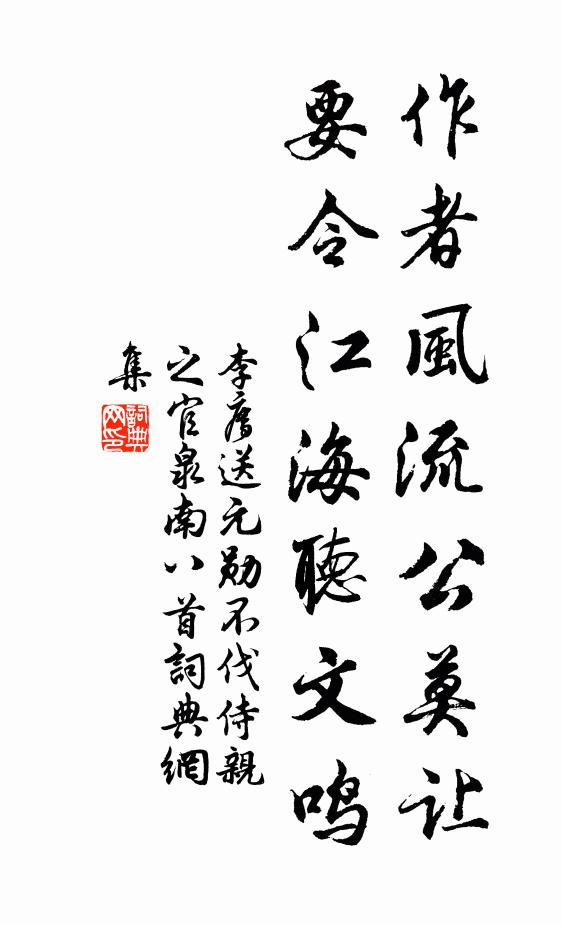 作者風流公莫让
要令江海聽文鳴
李廌送元勋不伐侍親
之官泉南八首詞典網
集
詞典网印